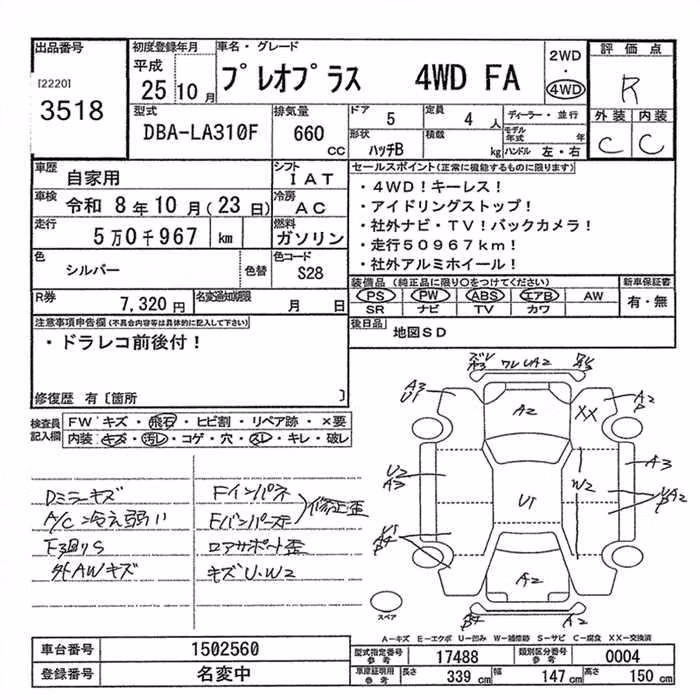 出品番号
[2220]
3518
初度登録年月
平成
25 10 月
車名・グレード
プレオプラス 4WD FA
2WD
・
4WD
評価点
R
外装 内装
C C
型式
DBA-LA310F
排気量
660
CC
ドア
5
定員
4 人
形状
ハッチB
積載
kg
ディーラー・並行
モデル年式 年
ハンドル 左・右
車歴
自家用
シフト
IAT
車検
令和 8年 10月(23日)
冷房
AC
走行
5万0千967 km
燃料
ガソリン
色
シルバー
色替
色コード
S28
R券
7,320 円
名変通知期限
月 日
セールスポイント(正常に機能するものに限ります)
・4WD!キーレス!
・アイドリングストップ!
・社外ナビ・TV!バックカメラ!
・走行50967km!
・社外アルミホイール!
装備品(純正品に限り○をつけてください)
PS PW ABS エアB AW
SR ナビ TV カワ
新車保証書
有・無
後日品
地図SD
注意事項申告欄(不具合内容等は具体的に記入して下さい)
・ドラレコ前後付!
修復歴 有〔箇所 〕
検査員記入欄
FW キズ・飛石・ヒビ割・リペア跡・×要
内装 キズ・汚レ・コゲ・穴・スレ・キレ・破レ
Dミラーキズ
A/C 冷え弱い
F3回りS
外AWキズ
Fインパネ
Fバンパーステー
修正歪
ロアサポート歪
キズU.W2
A3
U1
A2
XX
A2
P
U2
A3
A3
W2
U1
A2
A2
A-キズ E-エクボ U-凹み W-補修跡 S-サビ C-腐食 XX-交換済
スペア
車台番号
1502560
登録番号
名変中
型式指定番号
参考
17488
類別区分番号
参考
0004
車庫証明用
参考
長さ
339 cm
幅
147 cm
高さ
150 cm